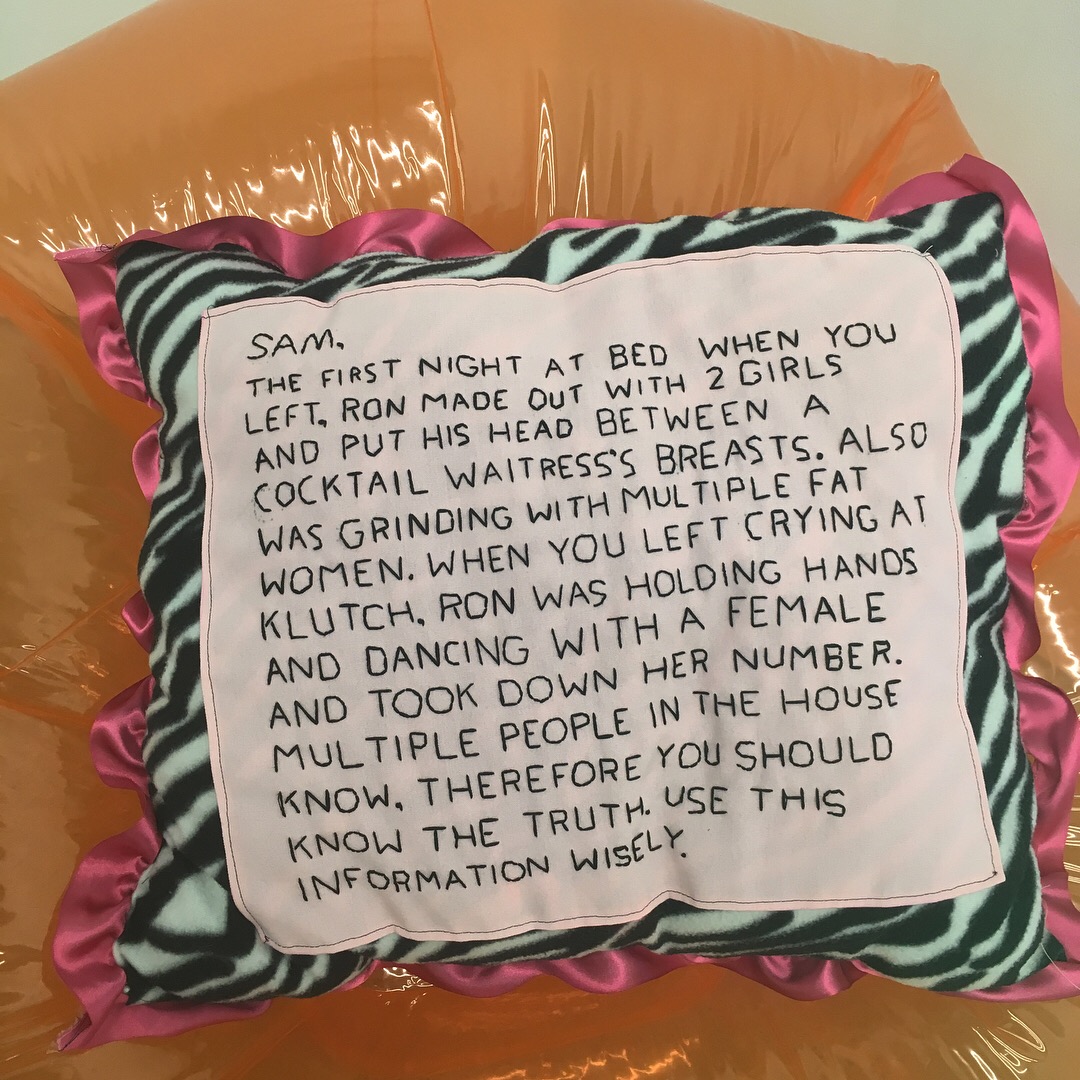 SAM.
THE FIRST NIGHT AT BED WHEN YOU
LEFT, RON MADE OUT WITH 2 GIRLS
AND PUT HIS HEAD BETWEEN A
COCKTAIL WAITRESS'S BREASTS. ALSO
WAS GRINDING WITH MULTIPLE FAT
WOMEN. WHEN YOU LEFT CRYING AT
KLUTCH, RON WAS HOLDING HANDS
AND DANCING WITH A FEMALE
AND TOOK DOWN HER NUMBER.
MULTIPLE PEOPLE IN THE HOUSE
KNOW, THEREFORE YOU SHOULD
KNOW THE TRUTH. USE THIS
INFORMATION WISELY.